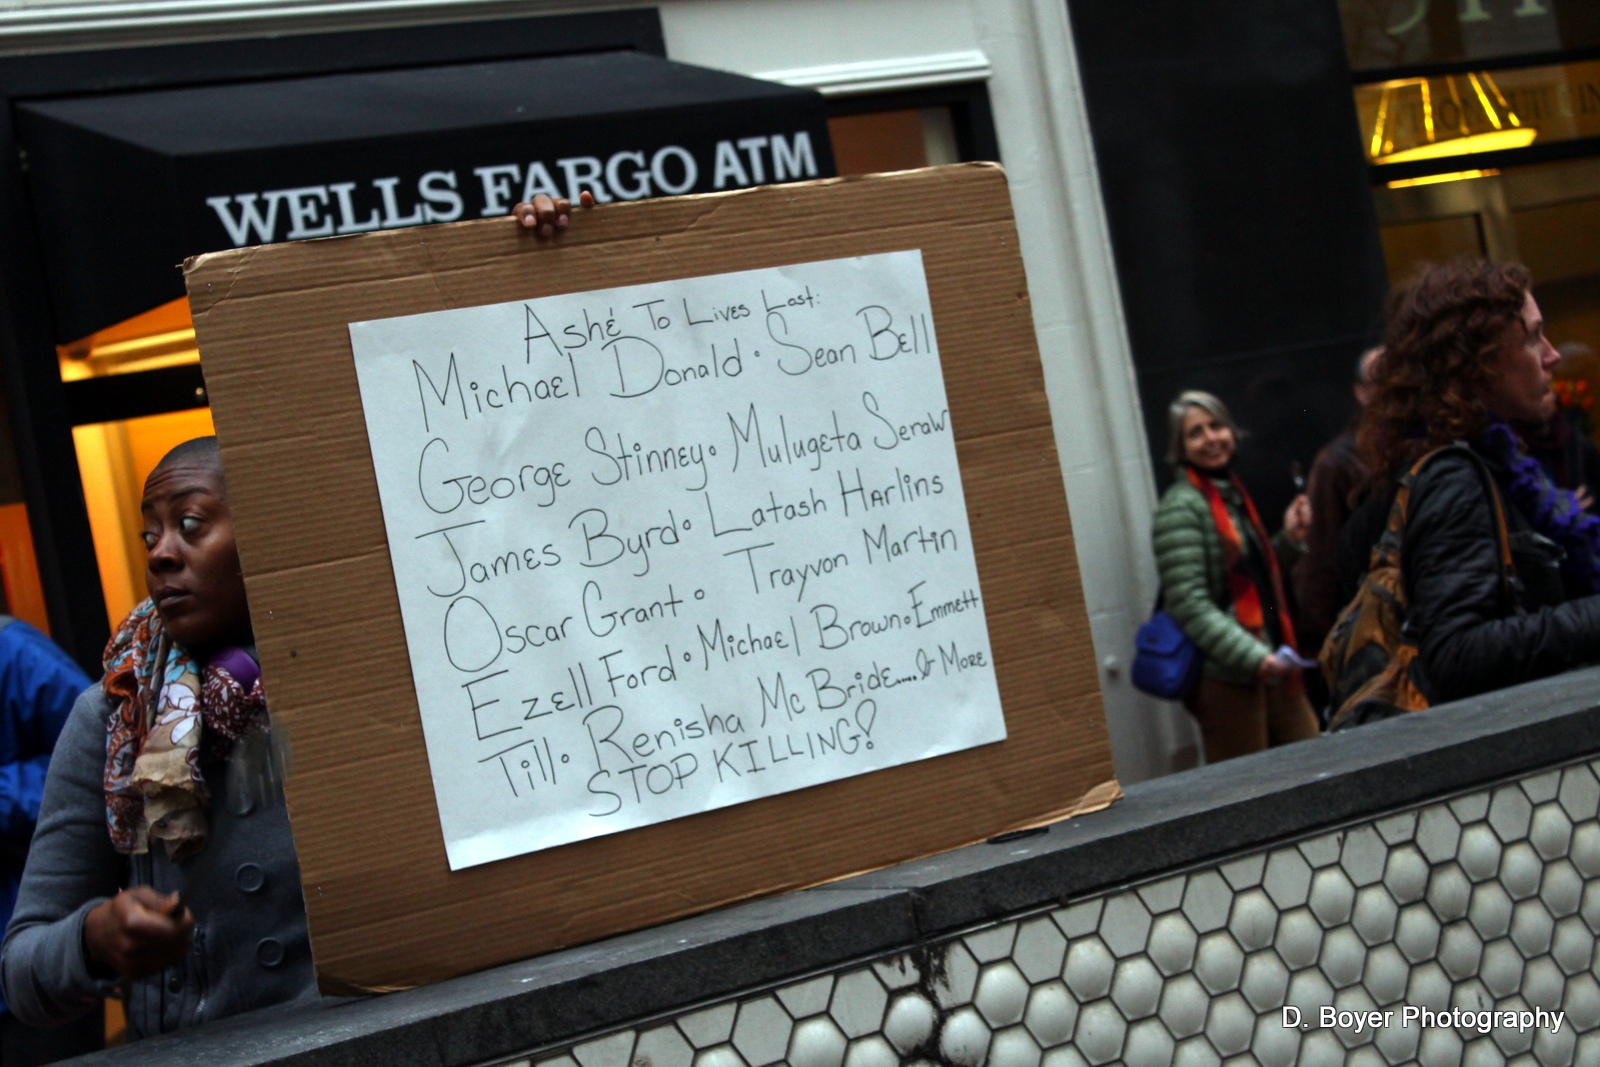 WELLS FARGO ATM
Ashé To Lives Lost:
Michael Donald • Sean Bell
George Stinney • Mulugeta Seraw
James Byrd • Latash Harlins
Oscar Grant • Trayvon Martin
Ezell Ford • Michael Brown • Emmett
Till • Renisha McBride.....& More
STOP KILLING!
D. Boyer Photography